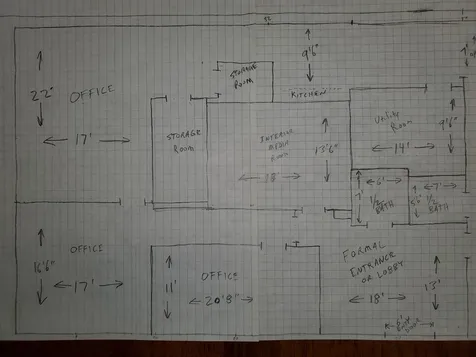 22'
OFFICE
17'
STORAGE
ROOM
STORAGE
ROOM
9'6"
KITCHEN
INTERIOR
ROOM
18'
13'6"
UTILITY
ROOM
14'
9'6"
7'
6'
1/2
BATH
5'
7'
1/2
BATH
16'6"
OFFICE
17'
11'
OFFICE
20'8"
FORMAL
ENTRANCE
OR LOBBY
18'
13'
6'
DOOR